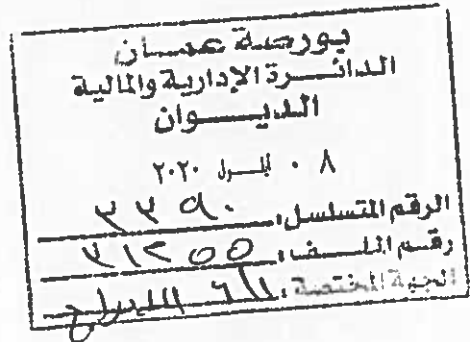 بورصة عمان
الدائرة الإدارية والمالية
الديوان
٠٨ ايلول ٢٠٢٠
الرقم المتسلسل: ٣٣٩٠
رقم الملف: ٣١٢٥٥
الجهة المختصة: